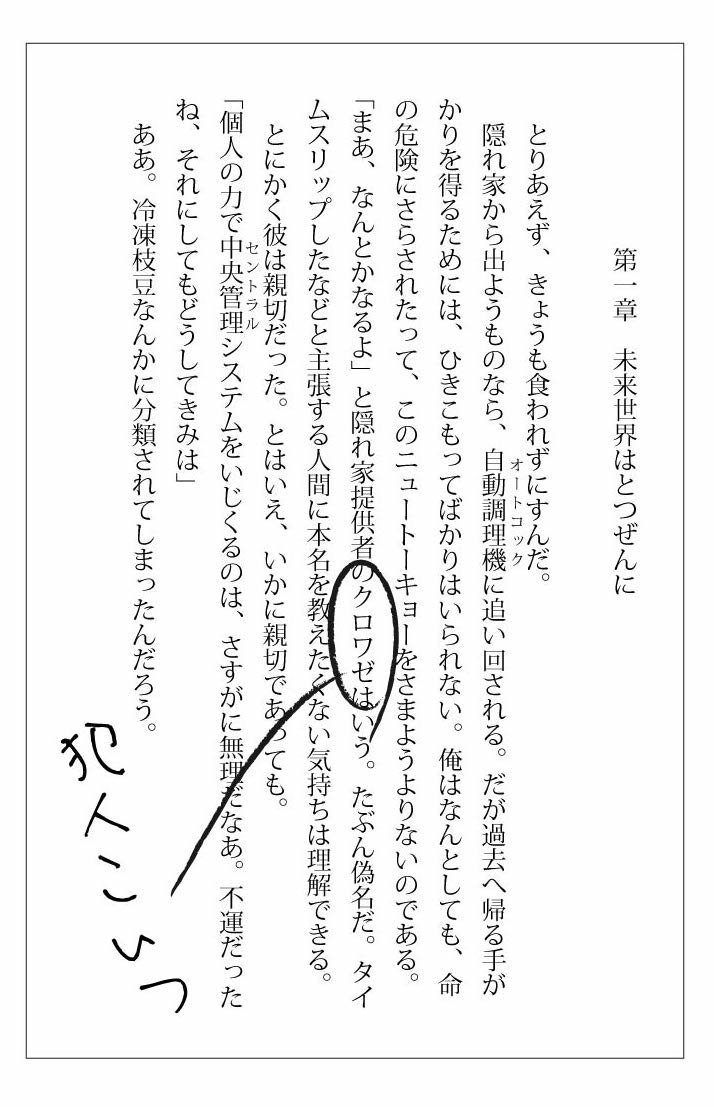 第一章　未来世界はとつぜんに
とりあえず、きょうも食われずにすんだ。
隠れ家から出ようものなら、自動調理機に追い回される。だが過去へ帰る手が
オートコック
かりを得るためには、ひきこもってばかりはいられない。俺はなんとしても、命
の危険にさらされたって、このニュートーキョーをさまようよりないのである。
「まあ、なんとかなるよ」と隠れ家提供者のクロワゼはいう。たぶん偽名だ。タイ
ムスリップしたなどと主張する人間に本名を教えたくない気持ちは理解できる。
とにかく彼は親切だった。とはいえ、いかに親切であっても。
「個人の力で中央管理システムをいじくるのは、さすがに無理だなあ。不運だった
セントラル
ね、それにしてもどうしてきみは」
ああ。冷凍枝豆なんかに分類されてしまったんだろう。
犯人こいつ